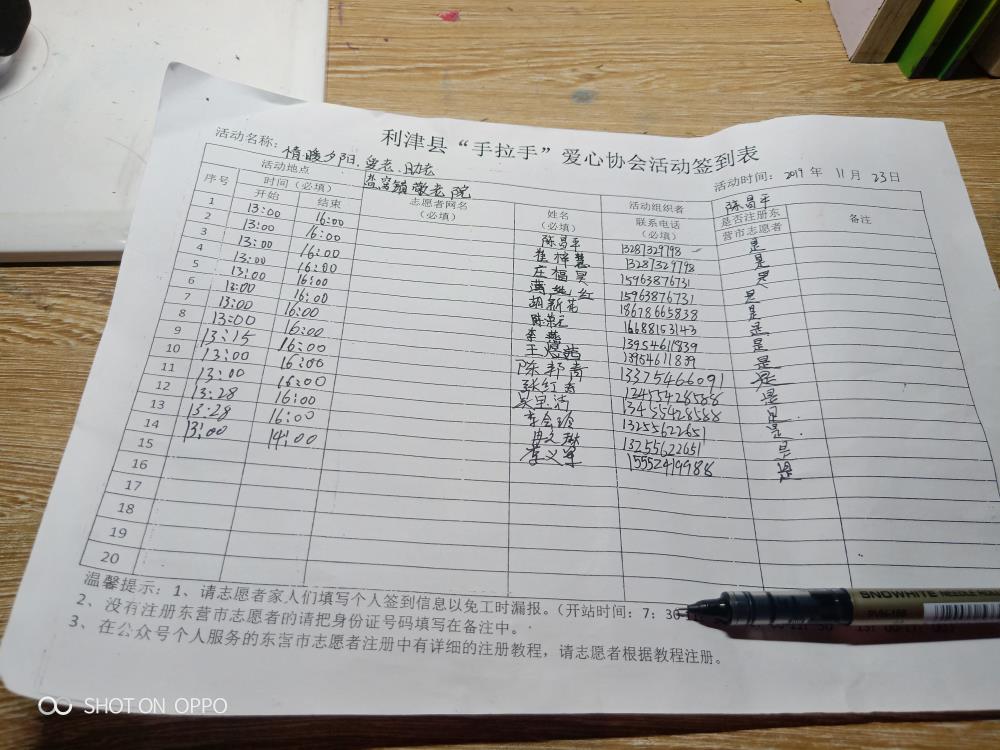 利津县“手拉手”爱心协会活动签到表
活动名称: 情暖夕阳.爱老.助老
活动时间: 2019 年 11 月 23 日
活动地点 盐窝镇敬老院 活动组织者 陈昌平
序号 时间（必填） 志愿者网名（必填） 姓名（必填） 联系电话（必填） 是否注册东营市志愿者 备注
开始 结束
1 13:00 16:00 陈昌平 13287329798 是
2 13:00 16:00 崔梓慧 13287329798 是
3 13:00 16:00 庄福昊 15963876731 是
4 13:00 16:00 15963876731 是
5 13:00 16:00 胡新芳 18678665838 是
6 13:00 16:00 陈荣 16688153143 是
7 13:00 16:00 李燕 13954611839 是
8 13:00 16:00 王煜 13954611839 是
9 13:15 16:00 陈邦青 13375466091 是
10 13:00 16:00 张红 13455428588 是
11 13:00 16:00 13455428588 是
12 13:28 16:00 李 13255622651 是
13 13:28 16:00 13255622651 是
14 13:00 14:00 李义军 15552419988 是
15
16
17
18
19
20
温馨提示: 1、请志愿者家人们填写个人签到信息以免工时漏报。（开站时间: 7: 30-11
2、没有注册东营市志愿者的请把身份证号码填写在备注中。
3、在公众号个人服务的东营市志愿者注册中有详细的注册教程，请志愿者根据教程注册。
SNOWHITE NEEDLE ROLL
SHOT ON OPPO